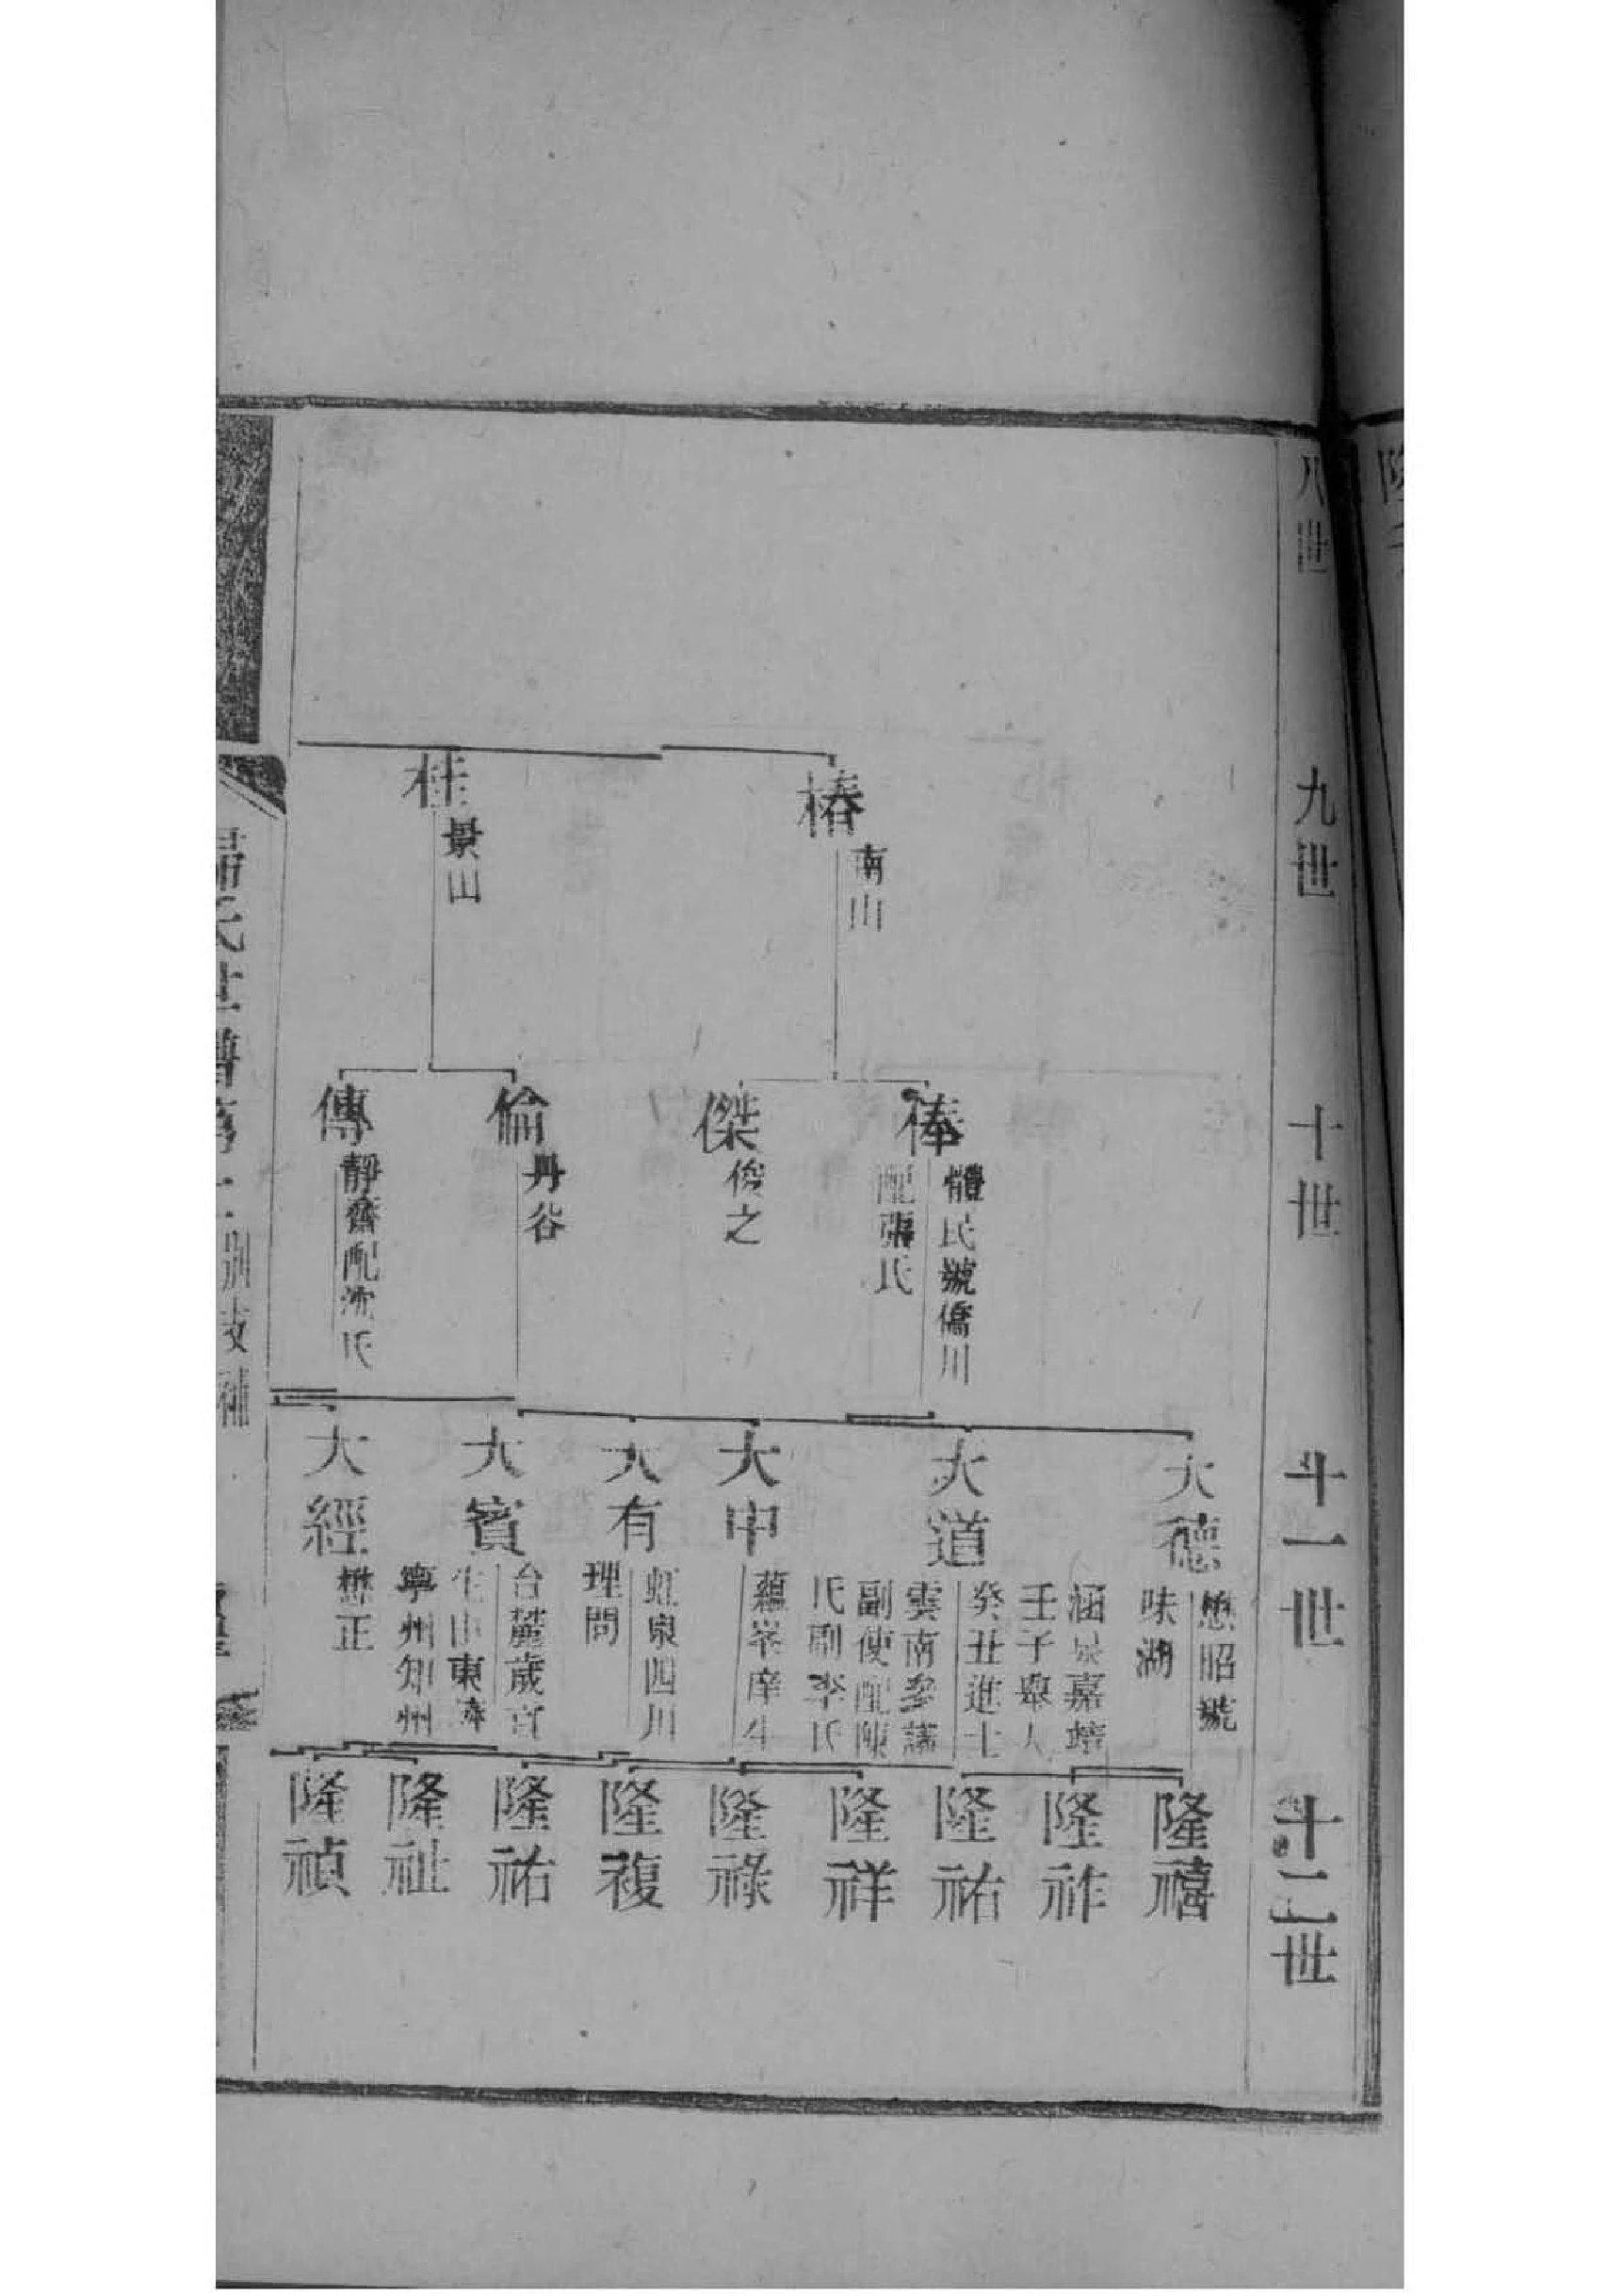 八世
九世
十世
十一世
十二世
椿
南山
桂
景山
俸
體民號僑川
配張氏
傑
俊之
倫
丹谷
傳
靜齋配沈氏
大德
懋昭號
味湖
大道
涵泉嘉靖
壬子舉人
癸丑進士
雲南參議
副使配陳
氏副李氏
大中
蘊峯庠生
大有
虹泉四川
理問
大賓
台麓歲貢
生山東
寧州知州
大經
懋正
隆禧
隆祚
隆祐
隆祥
隆祿
隆複
隆祐
隆祉
隆禎
歸氏世譜